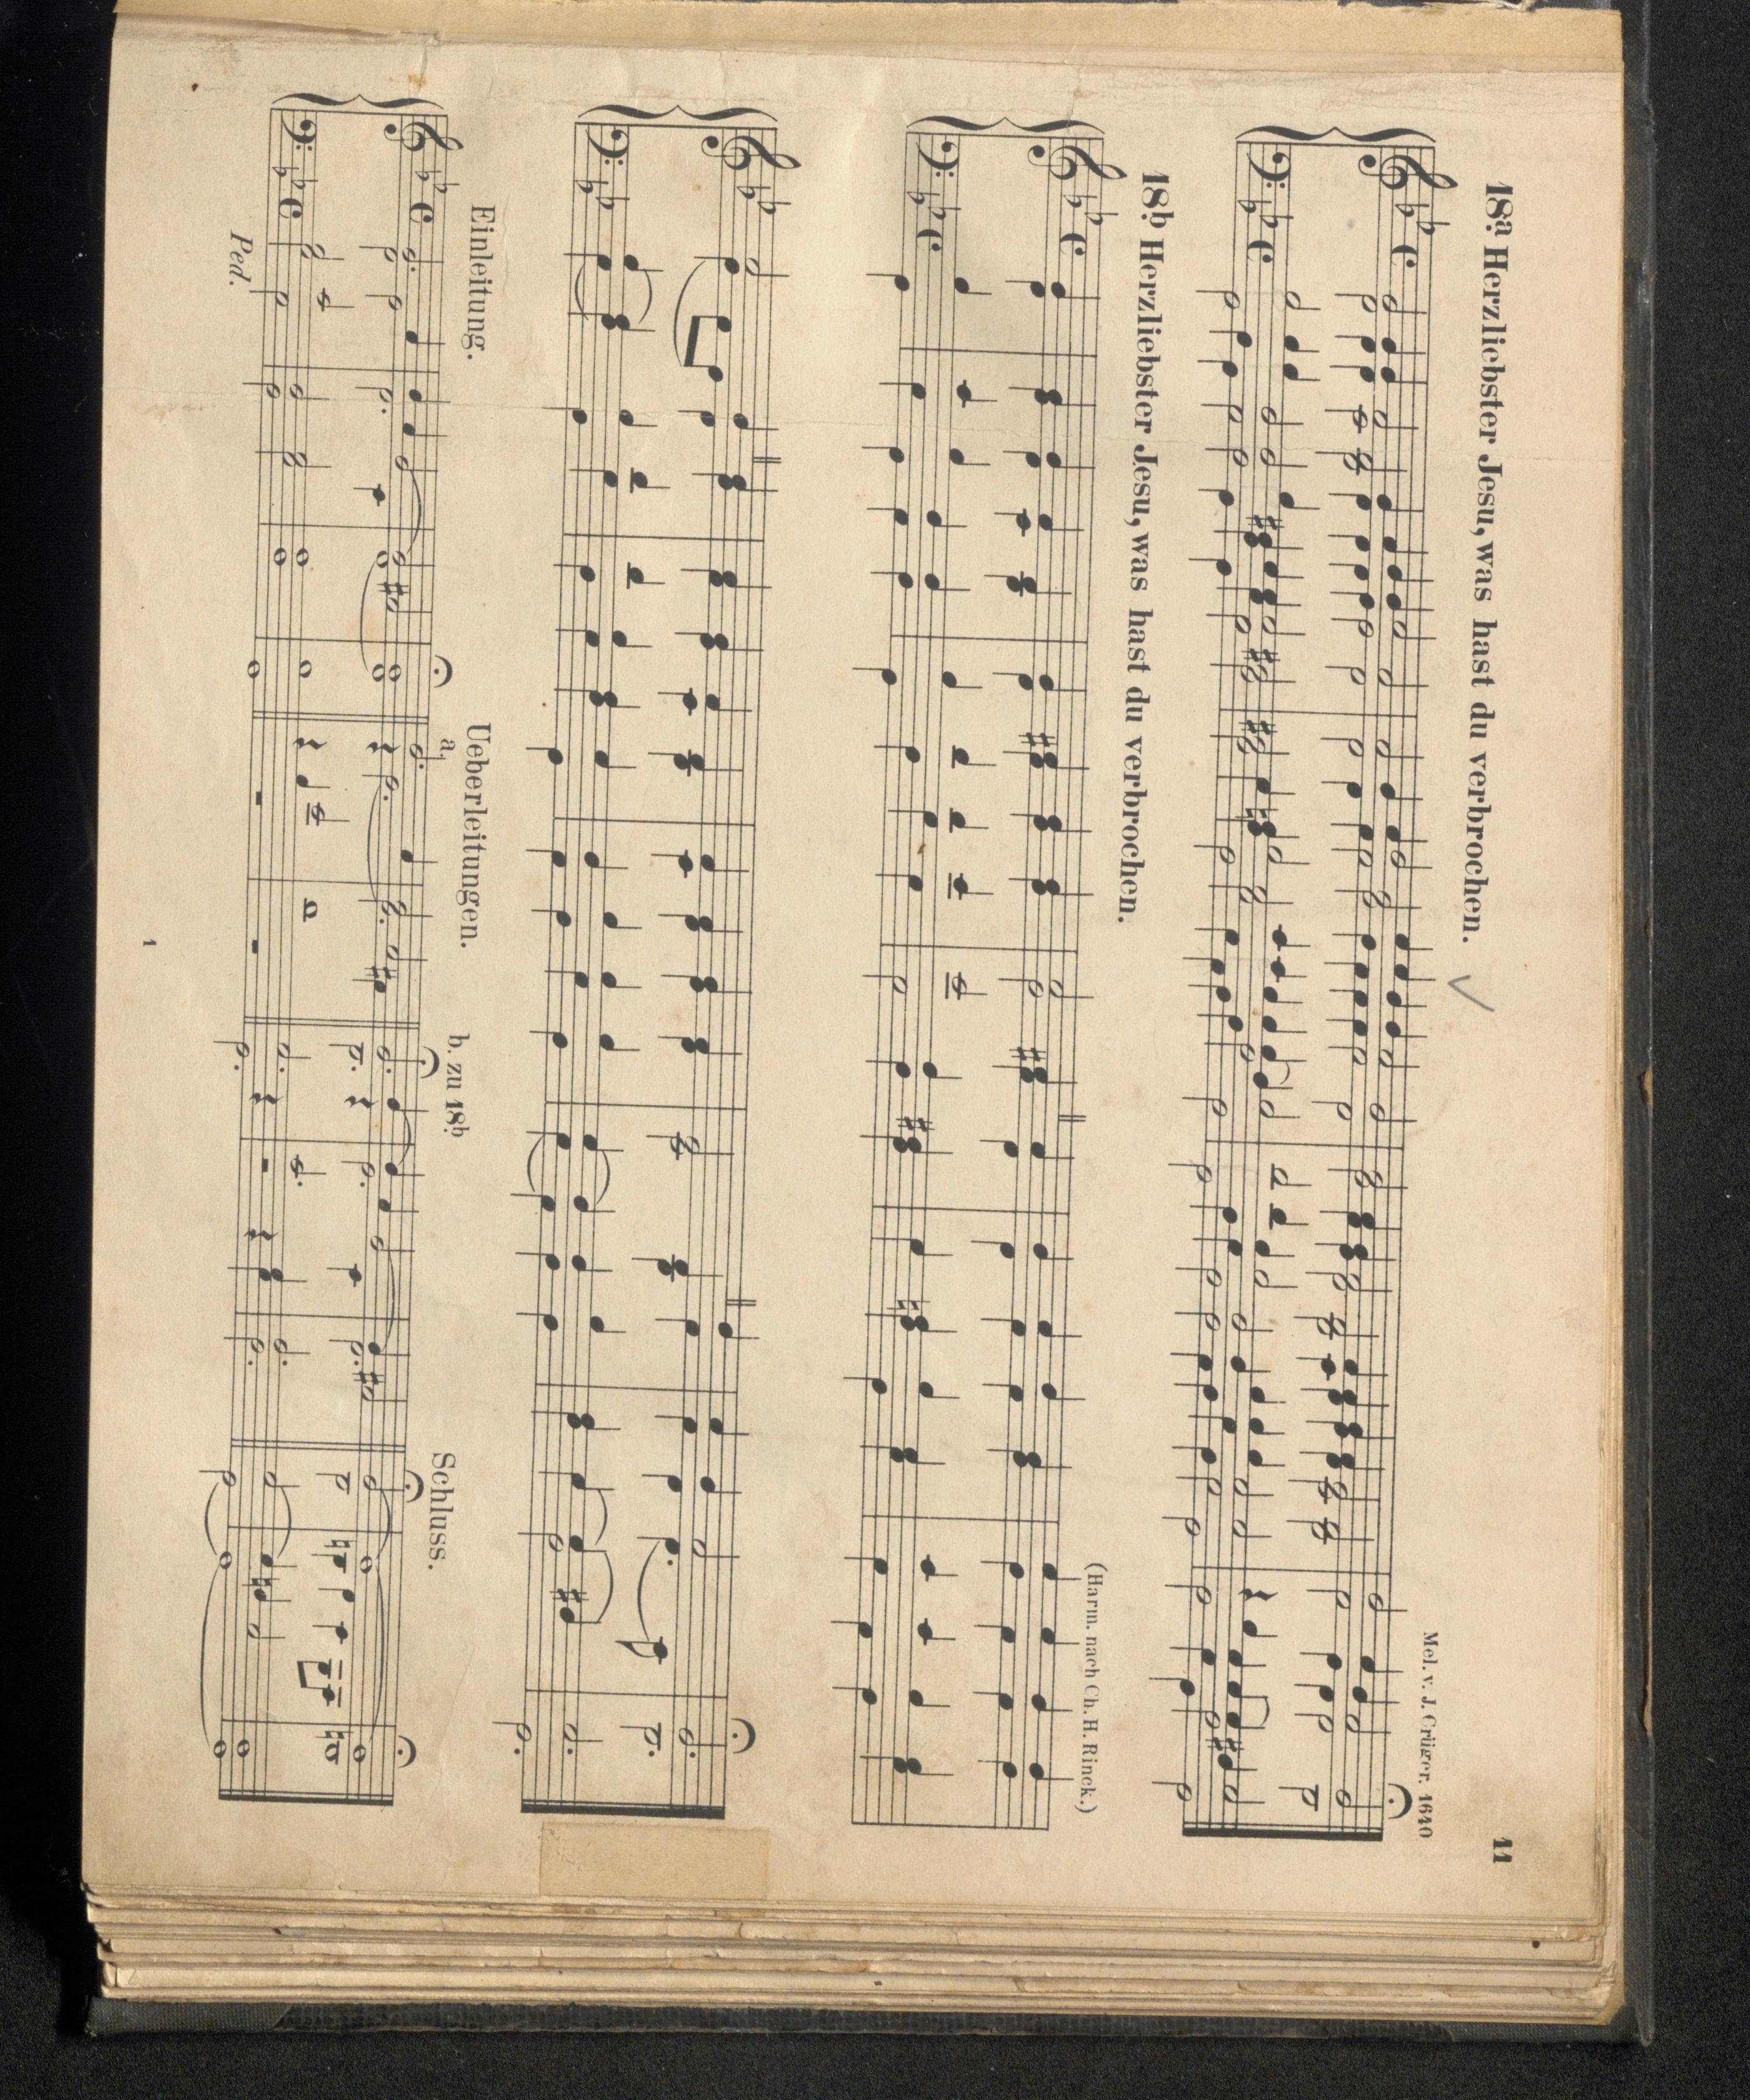 11
18a. Herzliebster Jesu, was hast du verbrochen.
Mel. v. J. Crüger. 1640
18b. Herzliebster Jesu, was hast du verbrochen.
(Harm. nach Ch. H. Rinck.)
Einleitung.
Ueberleitungen.
a.
b. zu 18b.
Schluss.
Ped.
1